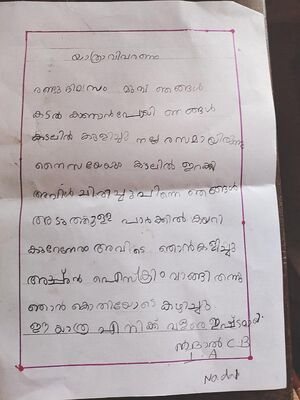 യാത്രാവിവരണം
രണ്ടു ദിവസം മുമ്പ് ഞങ്ങൾ
കടൽ കാണാൻപോയി ഞങ്ങൾ
കടലിൽ കുളിച്ചു നല്ല രസമായിരുന്നു
കടലിൽ ഇറക്കി
പിന്നെ ഞങ്ങൾ
അടുത്തുള്ള പാർക്കിൽ കയറി
കുറേനേരം അവിടെ ഞാൻകളിച്ചു
അച്ഛൻ ഐസ്ക്രീം വാങ്ങി തന്നു
ഞാൻ കൊതിയോടെ കഴിച്ചു
ഈ യാത്ര എനിക്ക് വളരെ ഇഷ്ടമായി
C B
1 A